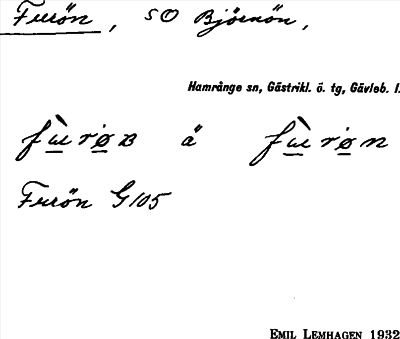 Furön, SO Björnön,
Hamrånge sn, Gästrikl. ö. tg, Gävleb. l.
fùrøʙ å fùrøn
Furön G105
EMIL LEMHAGEN 1932